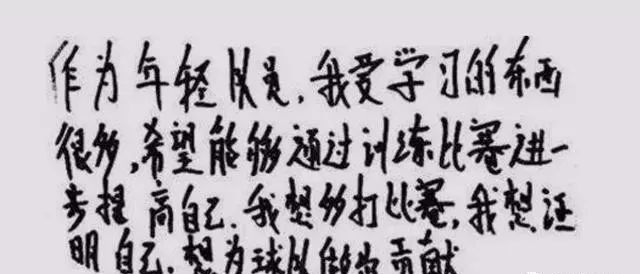 作为年轻队员，我受学习的东西
很多，希望能够通过训练比赛进一
步提高自己.我想多打比赛，我想证
明自己.想为球队做出贡献